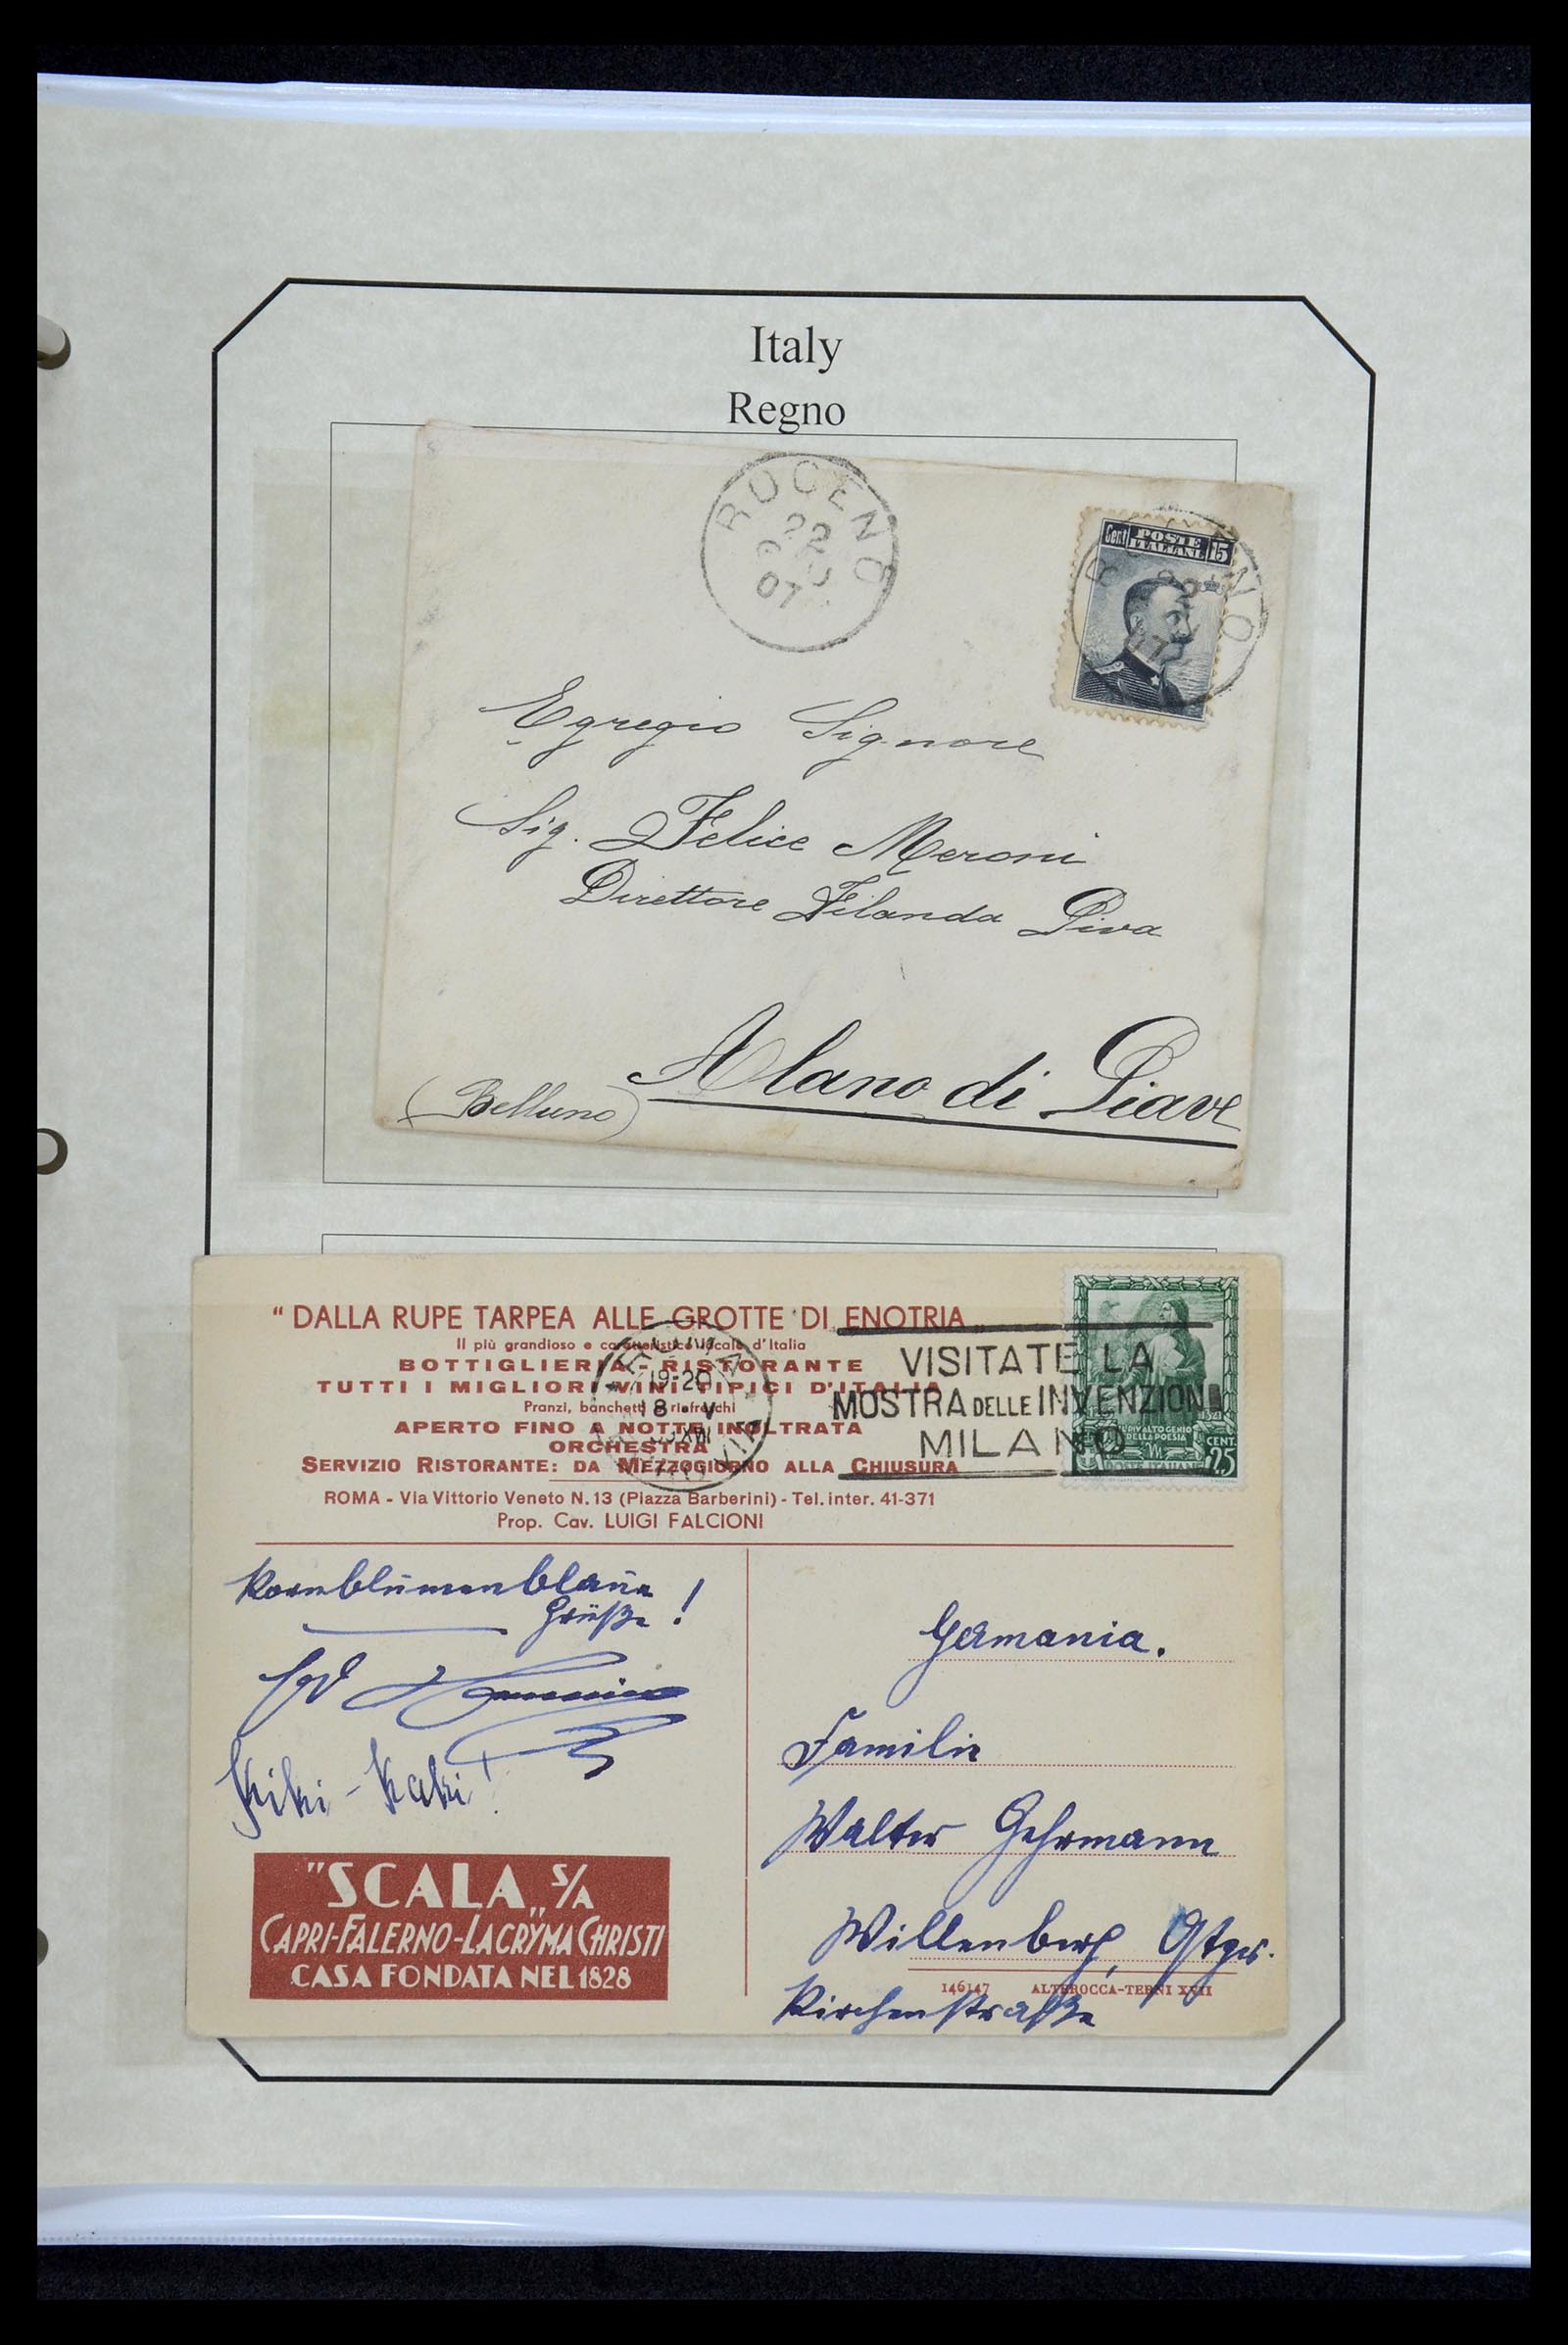 Italy
Regno
RUCENO
22
07
Cent POSTE ITALIANE 15
Egregio Signore
Sig. Felice Meroni
Direttore Filanda Piva
Alano di Piave
(Belluno)
“DALLA RUPE TARPEA ALLE GROTTE DI ENOTRIA„
Il più grandioso e caratteristico locale d'Italia
BOTTIGLIERIA - RISTORANTE
TUTTI I MIGLIORI VINI TIPICI D'ITALIA
Pranzi, banchetti e rinfreschi
APERTO FINO A NOTTE INOLTRATA
ORCHESTRA
SERVIZIO RISTORANTE: DA MEZZOGIORNO ALLA CHIUSURA
ROMA - Via Vittorio Veneto N. 13 (Piazza Barberini) - Tel. inter. 41-371
Prop. Cav. LUIGI FALCIONI
ROMA
19-20
18 V
XVI
VISITATE LA
MOSTRA DELLE INVENZIONI
MILANO
DELLA POESIA
CENT. 25
POSTE ITALIANE
Kornblumenblaue
Grüße!
Kiki - Kaki!
"SCALA„ S/A
CAPRI-FALERNO-LACRYMA CHRISTI
CASA FONDATA NEL 1828
Germania.
Familie
Walter Gehrmann
Willenberg, Ostpr.
146147 ALTEROCCA-TERNI XVII
Kirchenstraße